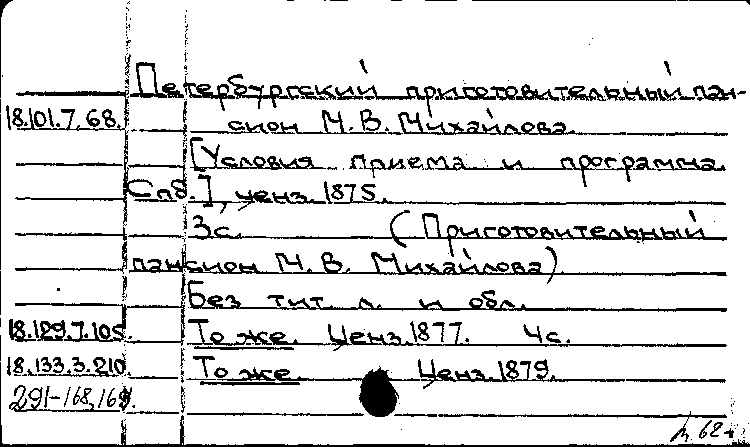 Петербургский приготовительный пан-
18.101.7.68. сион М.В. Михайлова.
[Условия приема и программа.
Спб.], ценз. 1875.
3с. (Приготовительный
пансион М.В. Михайлова)
Без тит. л. и обл.
18.129.7.105 То же. Ценз. 1877. 4с.
18.133.3.210 То же. Ценз. 1879.
291-168,169.
62